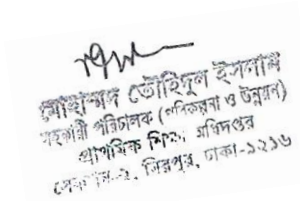 মোহাম্মদ তৌহিদুল ইসলাম
সহকারী পরিচালক (পলিকল্পনা ও উন্নয়ন)
প্রাথমিক শিক্ষা অধিদপ্তর
সেকশন-২, মিরপুর, ঢাকা-১২১৬